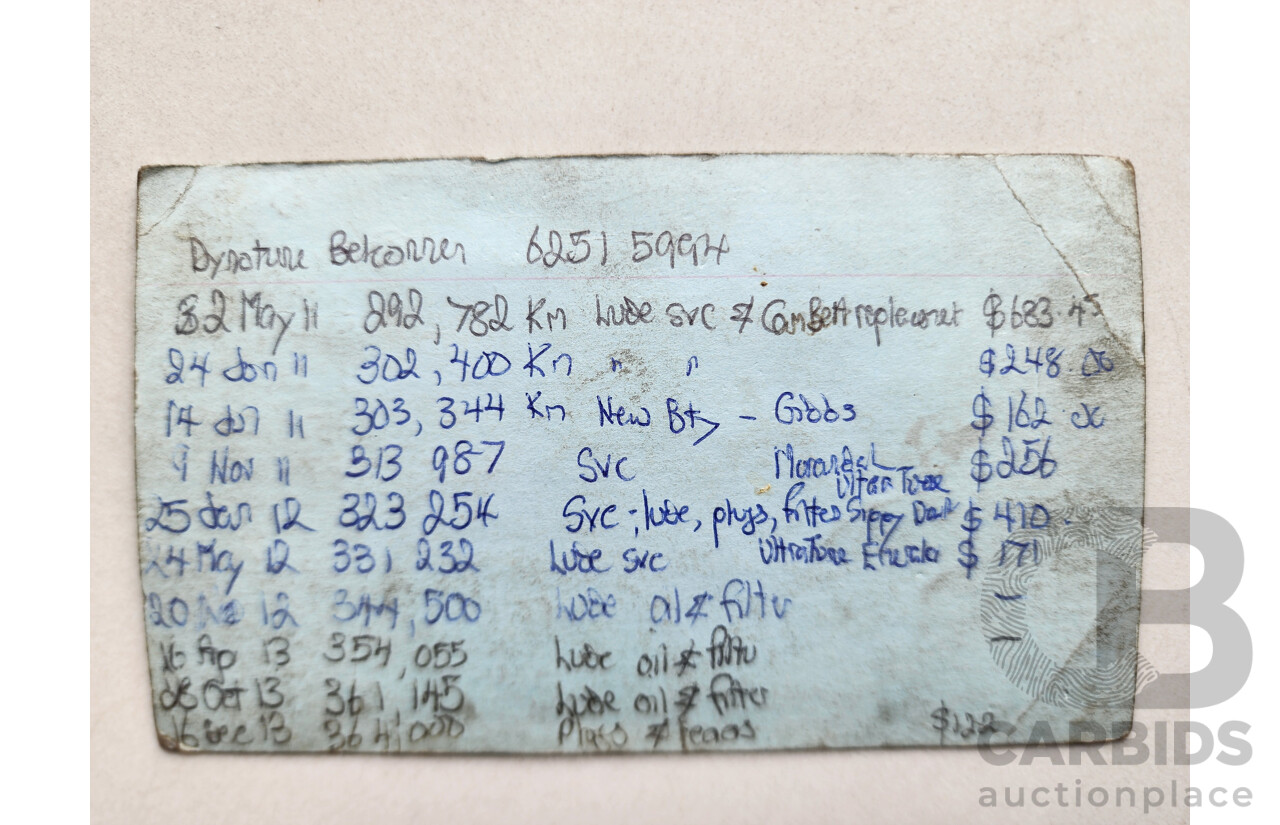 Dynotune Belconnen 6251 5994
2 May 11 292,782 Km Lube svc & Cam Belt $683.45
24 Jan 11 302,400 Km " " $248.00
14 Jan 11 303,344 Km New Bty - Gibbs $162.00
9 Nov 11 313 987 Svc $256
Ultra Tune
25 Jan 12 323 254 Svc - lube, plugs, filter $410.
24 May 12 331,232 Lube svc UltraTune $171
20 12 344,500 Lube oil & filter —
16 Ap 13 354,055 Lube oil & filter —
08 Oct 13 361,145 Lube oil & filter
16 Dec 13 364,000 Plugs & $122
CARBIDS
auctionplace